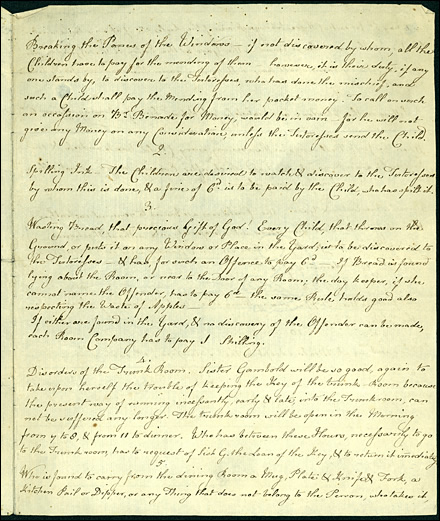 Breaking the Panes of the Windows — if not discovered by whom, all the
Children have to pay for the mending of them — however, it is their duty, if any
one stands by, to discover to the Tutoresses, who has done the mischief, and
such a Child shall pay the Mending from her pocket money; To call on such
an occasion on Br. for Money, would be in vain — for he will not
give any Money on any Consideration, unless the Tutoresses send the Child.
2
Spilling Ink — The Children are desired to watch & discover to the Tutoresses
by whom this is done, & a fine of 6d is to be paid by the Child, who has spilt it.
3.
Wasting Bread, that precious Gift of God! Every Child, that throws on the
Ground, or puts it on any Window or Place in the Yard, is to be discovered to
the Tutoresses — & has, for such an Offence to pay 6d — If Bread is found
lying about the Room, or near to the Door of any Room; the day keeper, if she
cannot name the Offender, has to pay 6d — the same Rule, holds good also
respecting the Waste of Apples —
If either are found in the Yard, & no discovery of the Offender can be made,
each Room Company has to pay 1 Shilling.
4.
Disorders of the Trunk Room. Sister Gambold will be so good, again to
take upon herself the trouble of keeping the Key of the trunk Room because
the present way of running incessantly, early & late, into the Trunk room, can
not be suffered any longer. The trunk room will be open in the Morning
from 7 to 8, & from 11 to dinner. Who has between these Hours, necessarily to go
to the Trunk room, has to request of Sish G. the Loan of the Key, & to return it immediately
5
Who is found to carry from the dining Room a Mug, Plate & Knife & Fork, a
Kitchen Pail or Dipper, or any Thing that does not belong to the Person, who takes it,